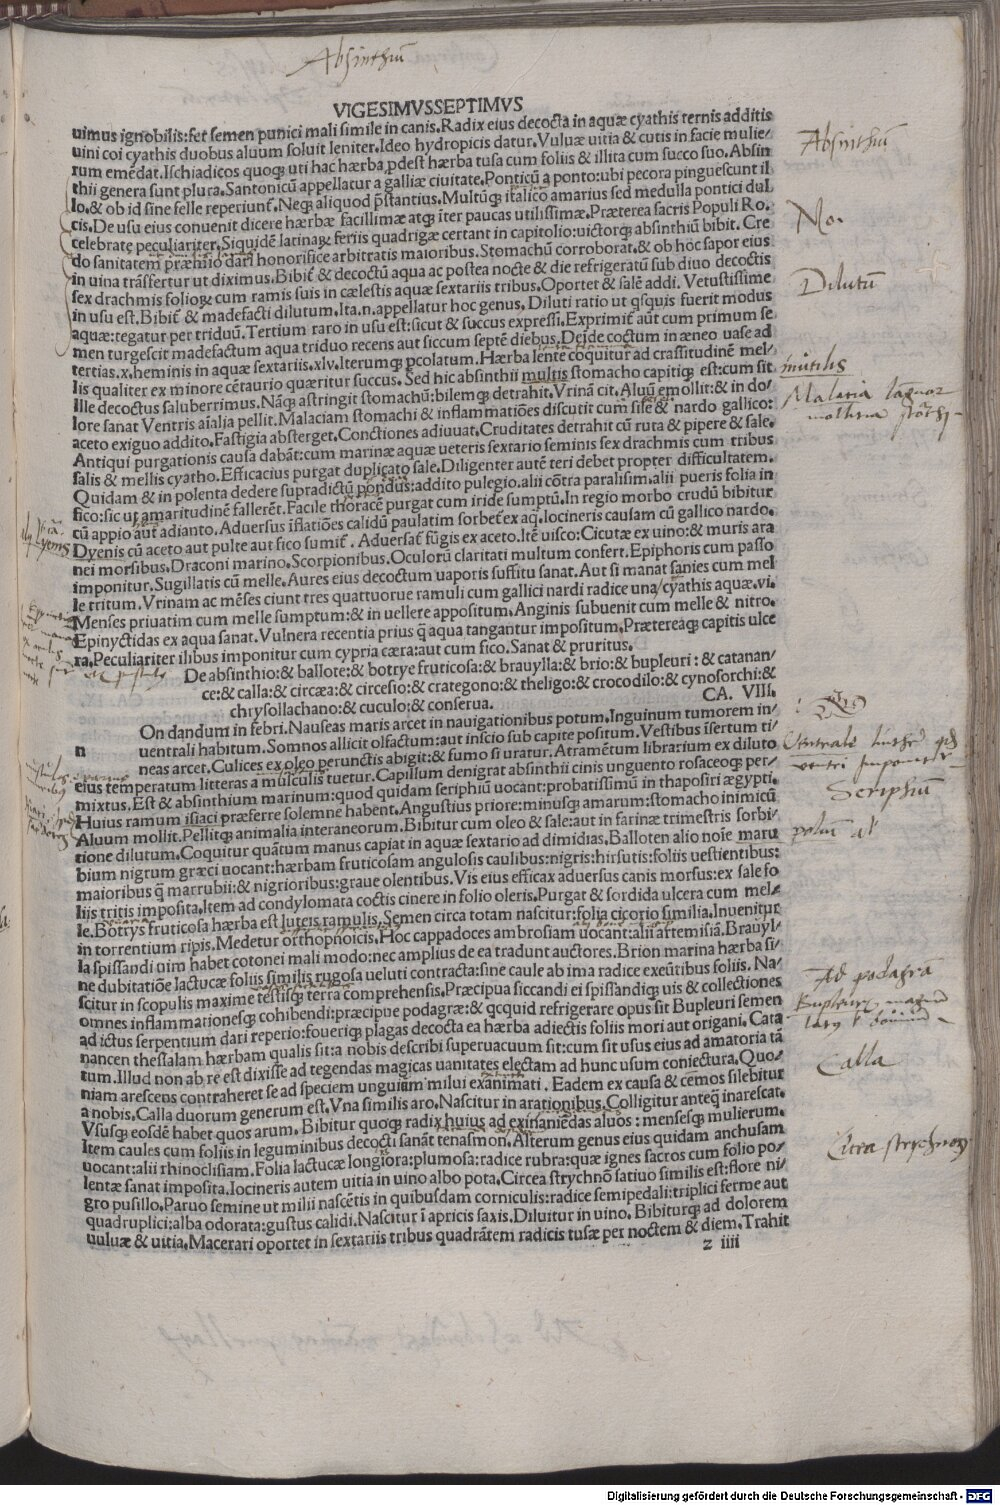 Absinthiū
VIGESIMVSSEPTIMVS
uimus ignobilis:fert semen punici mali simile in canis.Radix eius decocta in aquæ cyathis ternis additis
uini coi cyathis duobus aluum soluit leniter.Ideo hydropicis datur.Vuluæ uitia & cutis in facie mulie/
rum emēdat.Ischiadicos quoq; uti hac hærba pdest hærba tusa cum foliis & illita cum succo suo.Absin
thii genera sunt plura.Santonicū appellatur a galliæ ciuitate.Ponticū a ponto:ubi pecora pinguescunt il
lo.& ob id sine felle reperiunt̃.Neq; aliquod p̄stantius.Multūq; italico amarius sed medulla pontici dul
cis.De usu eius conuenit dicere hærbæ facillimæ atq; iter paucas utilissimæ.Præterea sacris Populi Ro.
celebrate peculiariter.Siquidē latinaꝝ feriis quadrigæ certant in capitolio:uictorq; absinthiū bibit. Cre
do sanitatem præmio dari honorifice arbitratis maioribus.Stomachū corroborat.& ob hoc sapor eius
in uina trāsfertur ut diximus.Bibit̃ & decoctū aqua ac postea nocte & die refrigeratū sub diuo decoctis
sex drachmis folioꝝ cum ramis suis in cælestis aquæ sextariis tribus.Oportet & salē addi. Vetustissime
in usu est.Bibit̃ & madefacti dilutum.Ita.n.appellatur hoc genus. Diluti ratio ut qsquis fuerit modus
aquæ:tegatur per triduū.Tertium raro in usu est:sicut & succus expressi.Exprimit̃ aūt cum primum se
men turgescit madefactum aqua triduo recens aut siccum septē diebus.Deide coctum in æneo uase ad
tertias.x.heminis in aquæ sextariis.xlv.Iterumq; pcolatum.Hærba lente coquitur ad crassitudinē mel/
lis qualiter ex minore cētaurio quæritur succus. Sed hic absinthii multis stomacho capitiq; est:cum sit
ille decoctus saluberrimus. Nāq; astringit stomachū:bilemq; detrahit.Vrinā cit.Aluū emollit:& in do/
lore sanat Ventris aīalia pellit.Malaciam stomachi & inflammatiōes discutit cum sile & nardo gallico:
aceto exiguo addito.Fastigia absterget.Conctiones adiuuat.Cruditates detrahit cū ruta & pipere & sale.
Antiqui purgationis causa dabāt:cum marinæ aquæ ueteris sextario seminis sex drachmis cum tribus
salis & mellis cyatho.Efficacius purgat duplicato sale.Diligenter autē teri debet propter difficultatem.
Quidam & in polenta dedere supradictū pondus:addito pulegio.alii cōtra paralisim.alii pueris folia in
fico:sic ut amaritudinē fallerēt.Facile thoracē purgat cum iride sumptū.In regio morbo crudū bibitur
cū appio aut adianto.Aduersus iflatiōes calidū paulatim sorbet̃ ex aq.Iocineris causam cū gallico nardo.
Dyenis cū aceto aut pulte aut fico sumit̃. Aduersat̃ fūgis ex aceto.Itē uisco:Cicutæ ex uino:& muris ara
nei morsibus.Draconi marino.Scorpionibus.Oculorū claritati multum confert.Epiphoris cum passo
imponitur.Sugillatis cū melle.Aures eius decoctum uaporis suffitu sanat.Aut si manat sanies cum mel
le tritum.Vrinam ac mēses ciunt tres quattuorue ramuli cum gallici nardi radice una/cyathis aquæ.vi.
Menses priuatim cum melle sumptum:& in uellere appositum.Anginis subuenit cum melle & nitro.
Epinyctidas ex aqua sanat.Vulnera recentia prius q̄ aqua tangantur impositum.Prætereaq; capitis ulce
ra.Peculiariter ilibus imponitur cum cypria cæra:aut cum fico.Sanat & pruritus.
De absinthio:& ballote:& botrye fruticosa:& brauylla:& brio:& bupleuri: & catanan/
ce:& calla:& circæa:& circesio:& crategono:& theligo:& crocodilo:& cynosorchi:&
chrysollachano:& cuculo:& conserua. CA. VIII.
n On dandum in febri.Nauseas maris arcet in nauigationibus potum.Inguinum tumorem in/
uentrali habitum. Somnos allicit olfactum:aut inscio sub capite positum.Vestibus isertum ti/
neas arcet.Culices ex oleo perunctis abigit:& fumo si uratur. Atramētum librarium ex diluto
eius temperatum litteras a musculis tuetur.Capillum denigrat absinthii cinis unguento rosaceoq; per/
mixtus.Est & absinthium marinum:quod quidam seriphiū uocant:probatissimū in thaposiri ægypti.
Huius ramum isiaci præferre solemne habent.Angustius priore:minusq; amarum:stomacho inimicū
Aluum mollit.Pellitq; animalia interaneorum.Bibitur cum oleo & sale:aut in farinæ trimestris sorbi/
tione dilutum.Coquitur quātum manus capiat in aquæ sextario ad dimidias.Balloten alio noīe maru
bium nigrum græci uocant:hærbam fruticosam angulosis caulibus:nigris:hirsutis:foliis uestientibus:
maioribus q̄ marrubii:& nigrioribus:graue olentibus. Vis eius efficax aduersus canis morsus:ex sale fo
liis tritis imposita.Item ad condylomata coctis cinere in folio oleris.Purgat & sordida ulcera cum mel/
le.Botrys fruticosa hærba est luteis ramulis.Semen circa totam nascitur:folia cicorio similia.Inuenitur
in torrentium ripis.Medetur orthopnoicis.Hoc cappadoces ambrosiam uocant:alii artemisiā.Brauyl/
la spissandi uim habet cotonei mali modo:nec amplius de ea tradunt auctores.Brion marina hærba si/
ne dubitatiōe lactucæ foliis similis rugosa ueluti contracta:sine caule ab ima radice exeūtibus foliis. Na/
scitur in scopulis maxime testisq; terra comprehensis.Præcipua siccandi ei spissandiq; uis & collectiones
omnes inflammationesq; cohibendi:præcipue podagræ:& qcquid refrigerare opus sit Bupleuri semen
ad ictus serpentium dari reperio:fouerīq; plagas decocta ea hærba adiectis foliis mori aut origani. Cata
nancen thessalam hærbam qualis sit:a nobis describi superuacuum sit:cum sit usus eius ad amatoria tā
tum.Illud non ab re est dixisse ad tegendas magicas uanitates electam ad hunc usum coniectura. Quo/
niam arescens contraheret se ad speciem unguium milui exanimati . Eadem ex causa & cēmos silebitur
a nobis.Calla duorum generum est.Vna similis aro.Nascitur in arationibus.Colligitur anteq̄ inarescat.
Vsusq; eosdē habet quos arum. Bibitur quoq; radix huius ad exinaniēdas aluos : mensesq; mulierum.
Item caules cum foliis in leguminibus decocti sanāt tenasmon.Alterum genus eius quidam anchusam
uocant:alii rhinoclisiam. Folia lactucæ longiora:plumosa:radice rubra:quæ ignes sacros cum folio po/
lentæ sanat imposita.Iocineris autem uitia in uino albo pota.Circea strychnō satiuo similis est:flore ni/
gro pusillo.Paruo semine ut milii nascētis in quibusdam corniculis:radice semipedali:triplici ferme aut
quadruplici:alba odorata:gustus calidi.Nascitur ī apricis saxis.Diluitur in uino. Bibiturq; ad dolorem
uuluæ & uitia.Macerari oportet in sextariis tribus quadrātem radicis tusæ per noctem & diem.Trahit
z iiii
Absinthiū
No.
Dilutū
inutilis
Seriphiū
Ad podagrā
Calla
Digitalisierung gefördert durch die Deutsche Forschungsgemeinschaft - DFG